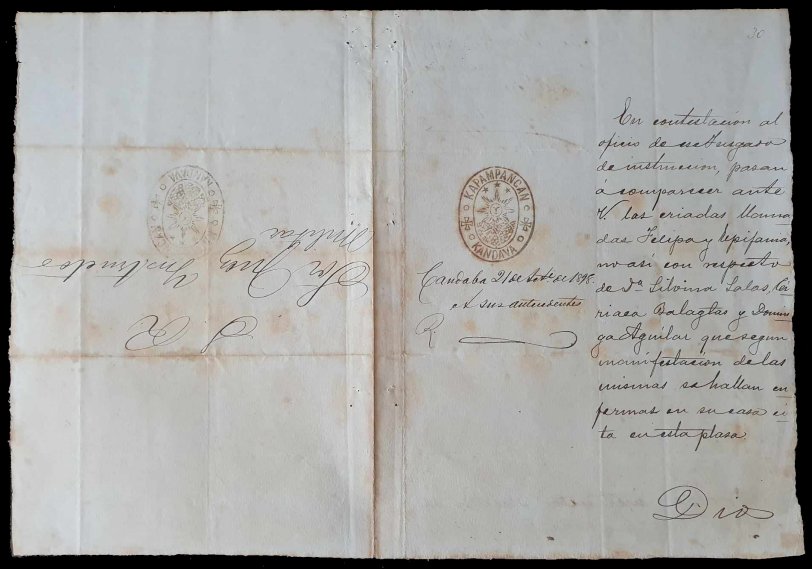 30
En contestacion al
oficio de ese Jusgado
de instrucion, pasan
á comparecer ante
V. las criadas llama
das Felipa y Epifania,
no así con respecto
de Dª Silvina Salas, Ci
riaca Balagtas y Domin
ga Aguilar que segun
manifestación de las
mismas se hallan en
fermas en su casa ci
ta en esta plasa.
Dio
KAPAMPANGAN
KANDAVA
Candaba 21 de de 1898.
A sus antecedentes
R
KAPAMPANGAN
KANDAVA
S R
Sr Juez Instructor
Militar